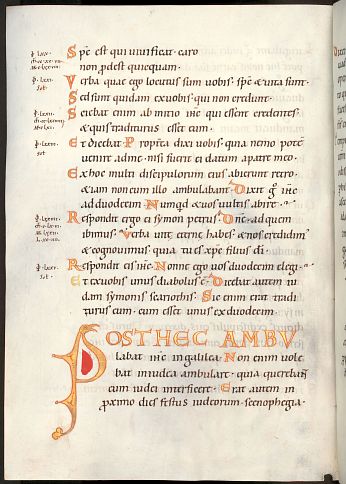 Sps est qui uiuificat. caro
non pdest quicquam.
Verba quae ego locutus sum uobis. sps & uita sunt.
Sed sunt quidam ex uobis. qui non credunt.
Sciebat enim ab initio ihc qui essent credentes
& quis traditurus esset eum.
Et dicebat. Propterea dixi uobis. quia nemo potest
uenire ad me. nisi fuerit ei datum a patre meo.
Ex hoc multi discipulorum eius abierunt retro.
& iam non cum illo ambulabant. Dixit g ihc
ad duodecim. Numqd & uos uultis abire.
Respondit ergo ei symon petrus. Dne. ad quem
ibimus. Verba uitę eternę habes. & nos credidimus
& cognouimus. quia tu es xps filius di.
Respondit eis ihc. Nonne ego uos duodecim elegi.
Et ex uobis unus diabolus e. Dicebat autem iu
dam symonis scariothis. Hic enim erat tradi
turus eum. cum esset unus ex duodecim.
POST HEC AMBU
labat ihc in galilea. Non enim uole
bat in iudea ambulare. quia querebant
eum iudei interficere. Erat autem in
proximo dies festus iudeorum. scenophegia.